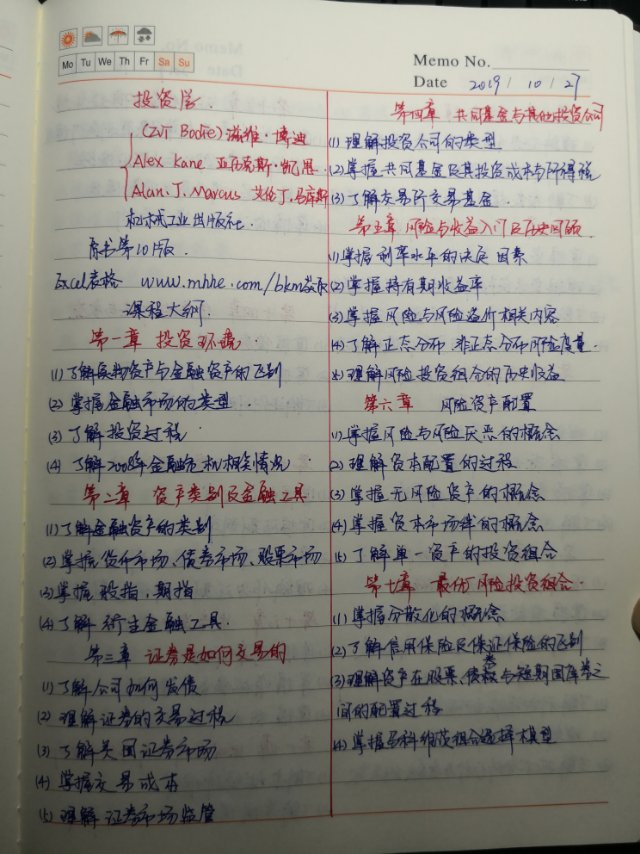 Mo Tu We Th Fr Sa Su
Memo No.
Date 2019 / 10 / 27
投资学.
(ZVI Bodie) 滋维·博迪
Alex Kane 亚历克斯·凯恩.
Alan. J. Marcus 艾伦丁.马库斯
机械工业出版社.
原书第10版.
Excel表格 www.mhhe.com/bkm获取
课程大纲.
第一章 投资环境.
(1) 了解实物资产与金融资产的区别
(2) 掌握金融市场的类型.
(3) 了解投资过程.
(4) 了解2008年金融危机相关情况.
第二章 资产类别及金融工具
(1) 了解金融资产的类别
(2) 掌握货币市场、债券市场、股票市场
(3) 掌握股指、期指
(4) 了解衍生金融工具.
第三章 证券是如何交易的
(1) 了解公司如何发债
(2) 理解证券的交易过程
(3) 了解美国证券市场
(4) 掌握交易成本
(5) 理解证券市场监管
第四章 共同基金与其他投资公司
(1) 理解投资公司的类型
(2) 掌握共同基金及其投资成本与所得税
(3) 了解交易所交易基金.
第五章 风险与收益入门及历史回顾.
(1) 掌握利率水平的决定因素
(2) 掌握持有期收益率
(3) 掌握风险与风险溢价相关内容
(4) 了解正态分布、非正态分布风险度量.
(5) 理解风险投资组合的历史收益
第六章 风险资产配置
(1) 掌握风险与风险厌恶的概念
(2) 理解资本配置的过程
(3) 掌握无风险资产的概念
(4) 掌握资本市场线的概念
(5) 了解单一资产的投资组合
第七章 最优风险投资组合.
(1) 掌握分散化的概念
(2) 了解信用保险及保证保险的区别
(3) 理解资产在股票、债券与短期国库券之
间的配置过程
(4) 掌握马科维茨组合选择模型